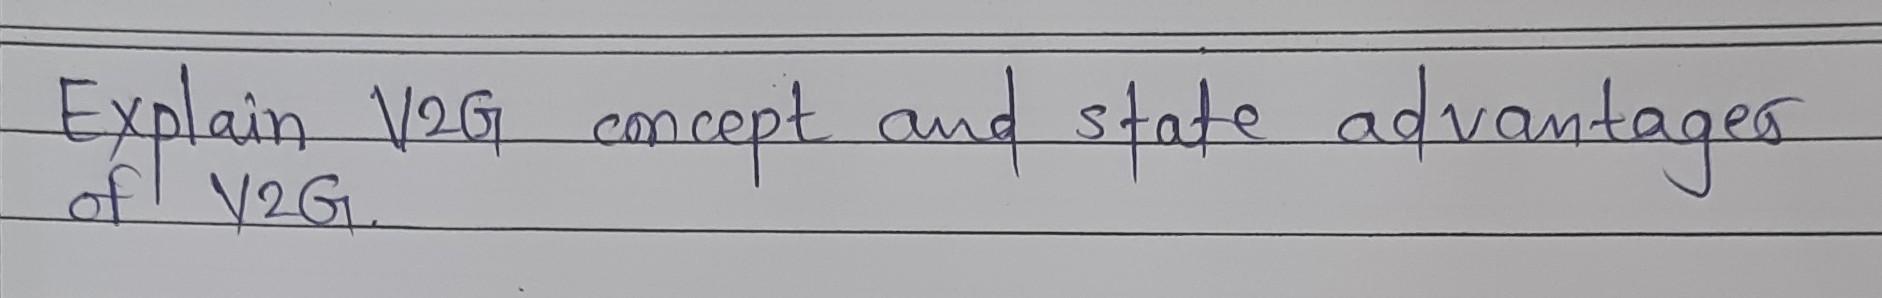 Explain V2G concept and state advantages
of V2G.